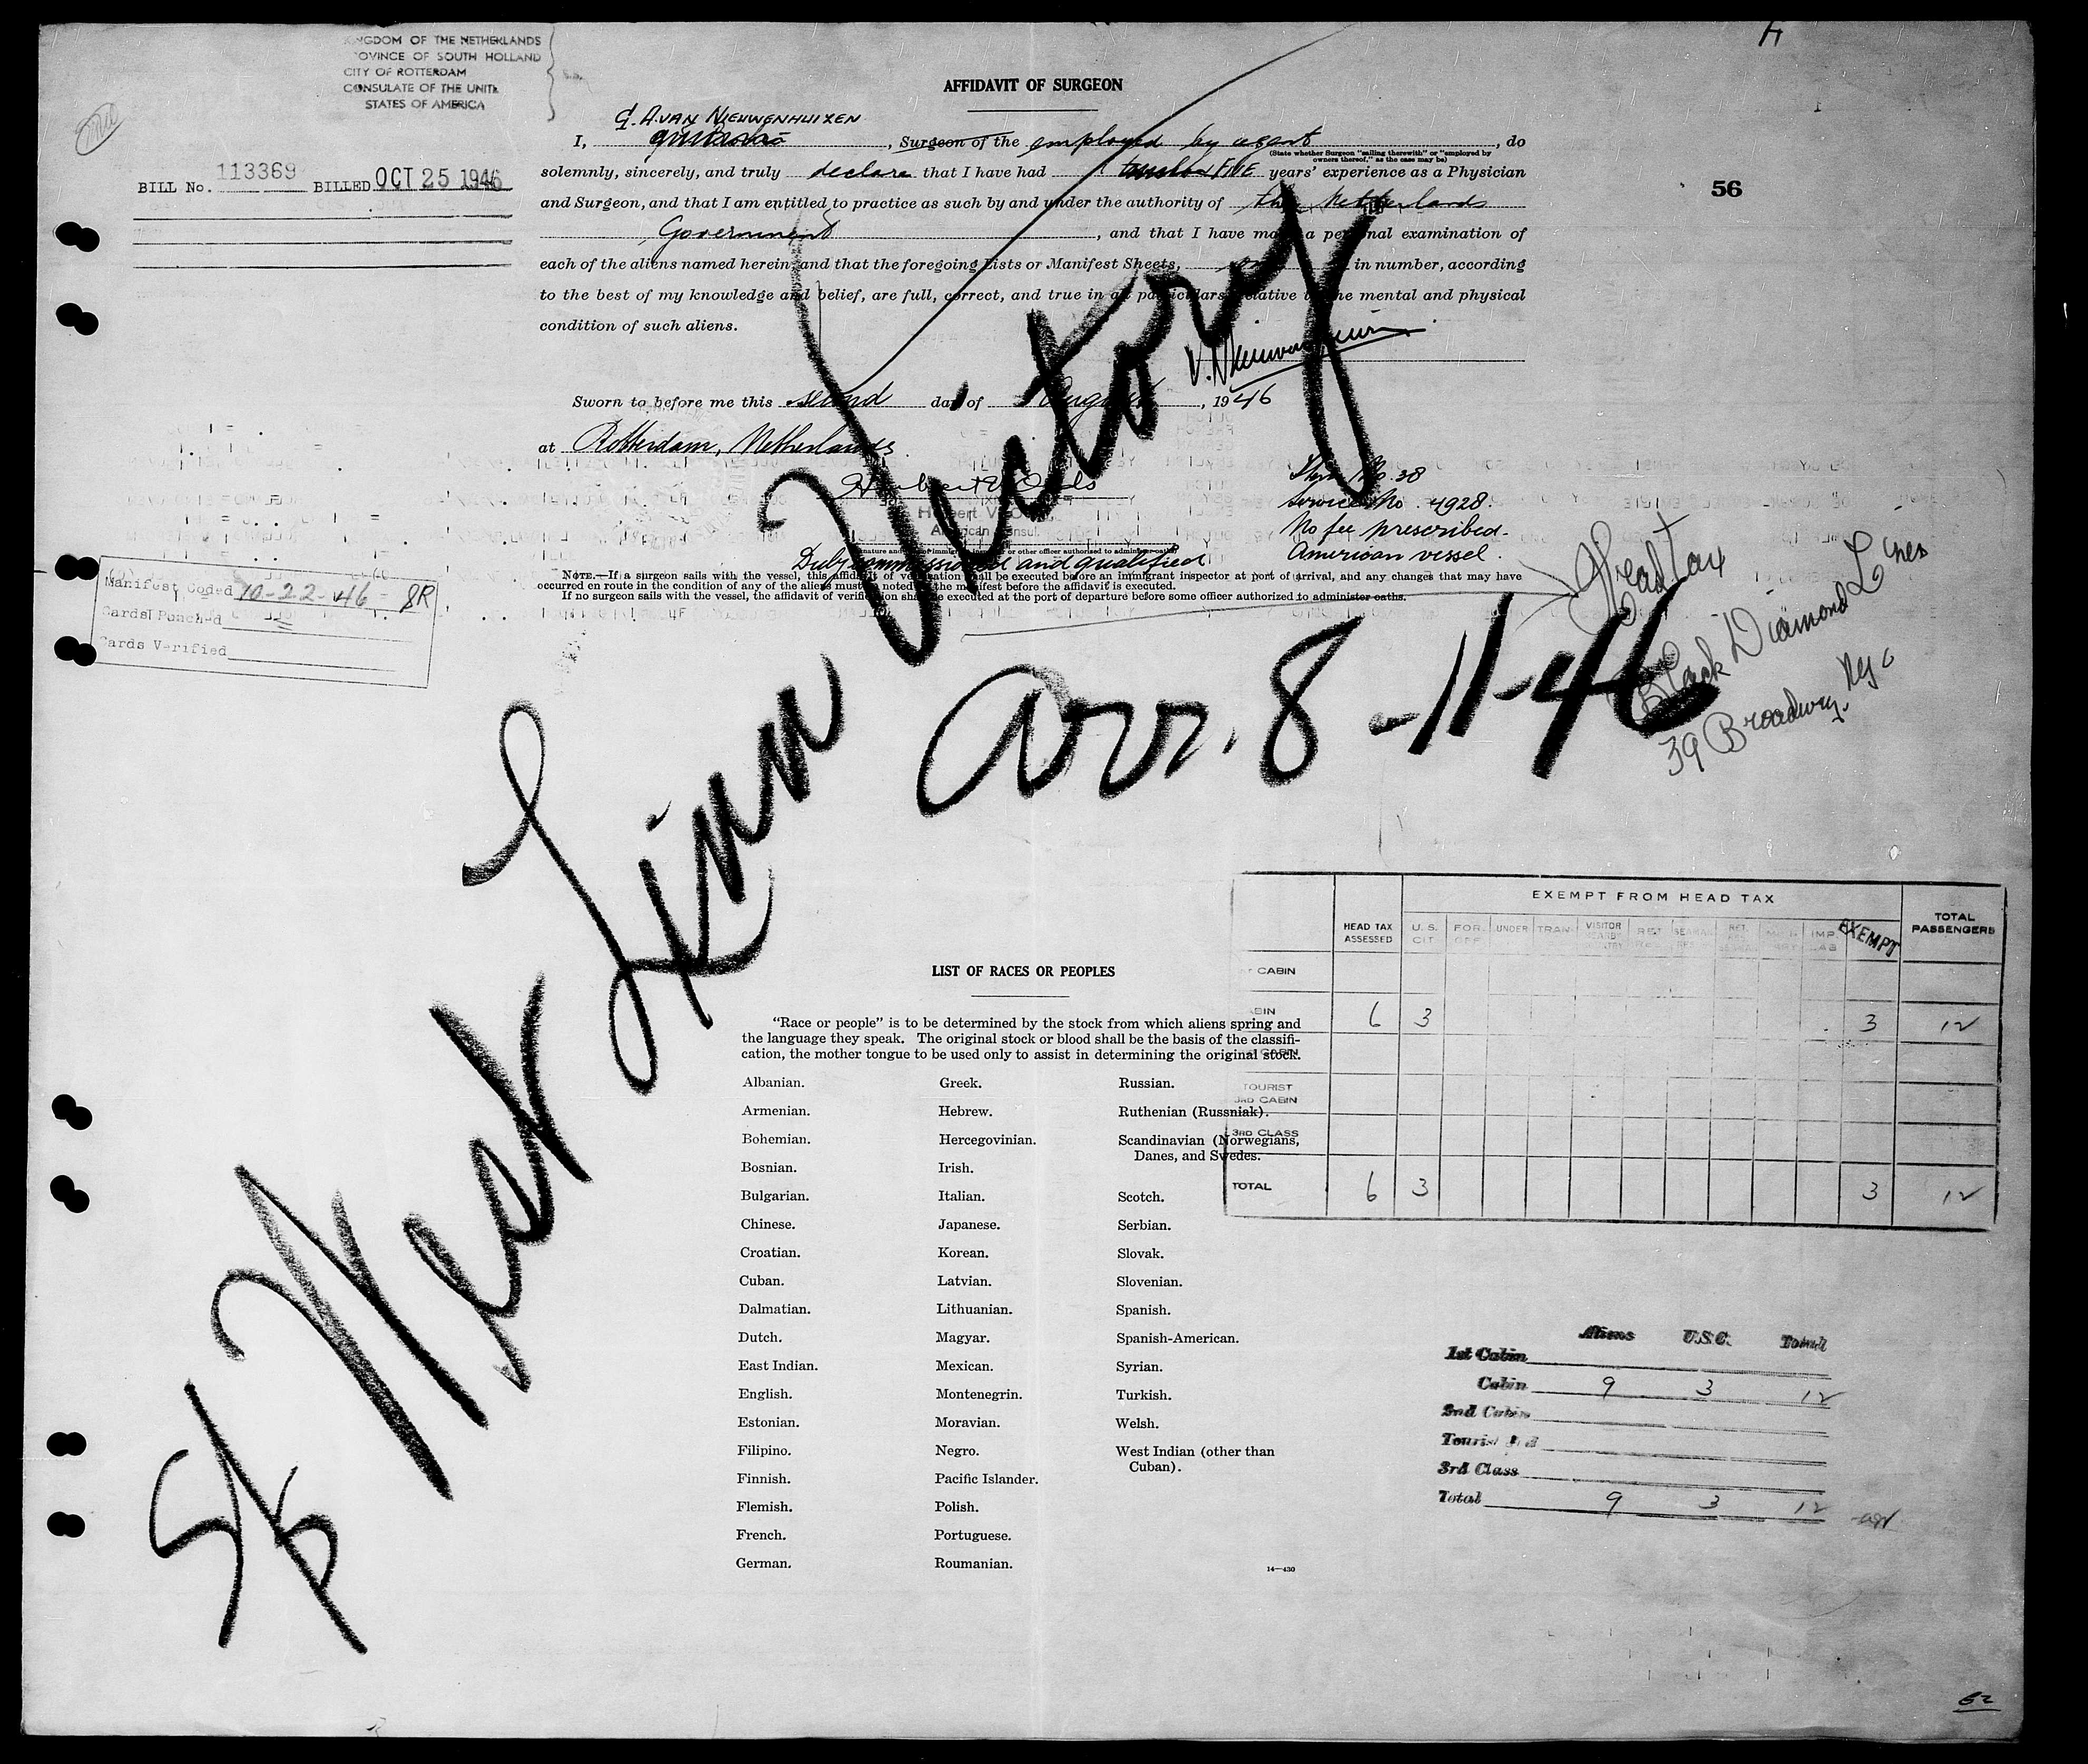 KINGDOM OF THE NETHERLANDS
PROVINCE OF SOUTH HOLLAND
CITY OF ROTTERDAM
CONSULATE OF THE UNITED
STATES OF AMERICA
BILL No. 113369 BILLED OCT 25 1946
56
AFFIDAVIT OF SURGEON
G. A. VAN NIEUWENHUIZEN
I, , Surgeon of the employed by agent , do
(State whether Surgeon "sailing therewith" or "employed by
owners thereof," as the case may be)
solemnly, sincerely, and truly declare that I have had FIVE years' experience as a Physician
and Surgeon, and that I am entitled to practice as such by and under the authority of the Netherlands
Government , and that I have made a personal examination of
each of the aliens named herein, and that the foregoing Lists or Manifest Sheets, in number, according
to the best of my knowledge and belief, are full, correct, and true in all particulars relative to the mental and physical
condition of such aliens.
Sworn to before me this second day of August , 1946
at Rotterdam, Netherlands
American Consul
Duly commissioned and qualified
No. 38
Service No. 4928.
No fee prescribed.
American vessel.
NOTE.—If a surgeon sails with the vessel, this affidavit of verification shall be executed before an immigrant inspector at port of arrival, and any changes that may have
occurred en route in the condition of any of the aliens must be noted on the manifest before the affidavit is executed.
If no surgeon sails with the vessel, the affidavit of verification shall be executed at the port of departure before some officer authorized to administer oaths.
Manifest Coded 10-22-46 - 8R
Cards Punched
Cards Verified
Head tax
Black Diamond Lines
39 Broadway, NYC
Arr. 8-11-46
Victory
LIST OF RACES OR PEOPLES
"Race or people" is to be determined by the stock from which aliens spring and
the language they speak. The original stock or blood shall be the basis of the classifi-
cation, the mother tongue to be used only to assist in determining the original stock.
Albanian. Greek. Russian.
Armenian. Hebrew. Ruthenian (Russniak).
Bohemian. Hercegovinian. Scandinavian (Norwegians,
Danes, and Swedes.
Bosnian. Irish.
Bulgarian. Italian. Scotch.
Chinese. Japanese. Serbian.
Croatian. Korean. Slovak.
Cuban. Latvian. Slovenian.
Dalmatian. Lithuanian. Spanish.
Dutch. Magyar. Spanish-American.
East Indian. Mexican. Syrian.
English. Montenegrin. Turkish.
Estonian. Moravian. Welsh.
Filipino. Negro. West Indian (other than
Cuban).
Finnish. Pacific Islander.
Flemish. Polish.
French. Portuguese.
German. Roumanian.
14—430
EXEMPT FROM HEAD TAX
HEAD TAX ASSESSED U.S. CIT FOR. OFF UNDER TRAN. VISITOR EXEMPT TOTAL PASSENGERS
CABIN
CABIN 6 3 3 12
TOURIST
3RD CABIN
3RD CLASS
TOTAL 6 3 3 12
Aliens U.S.C. Total
1st Cabin
Cabin 9 3 12
2nd Cabin
Tourist 3rd
3rd Class
Total 9 3 12